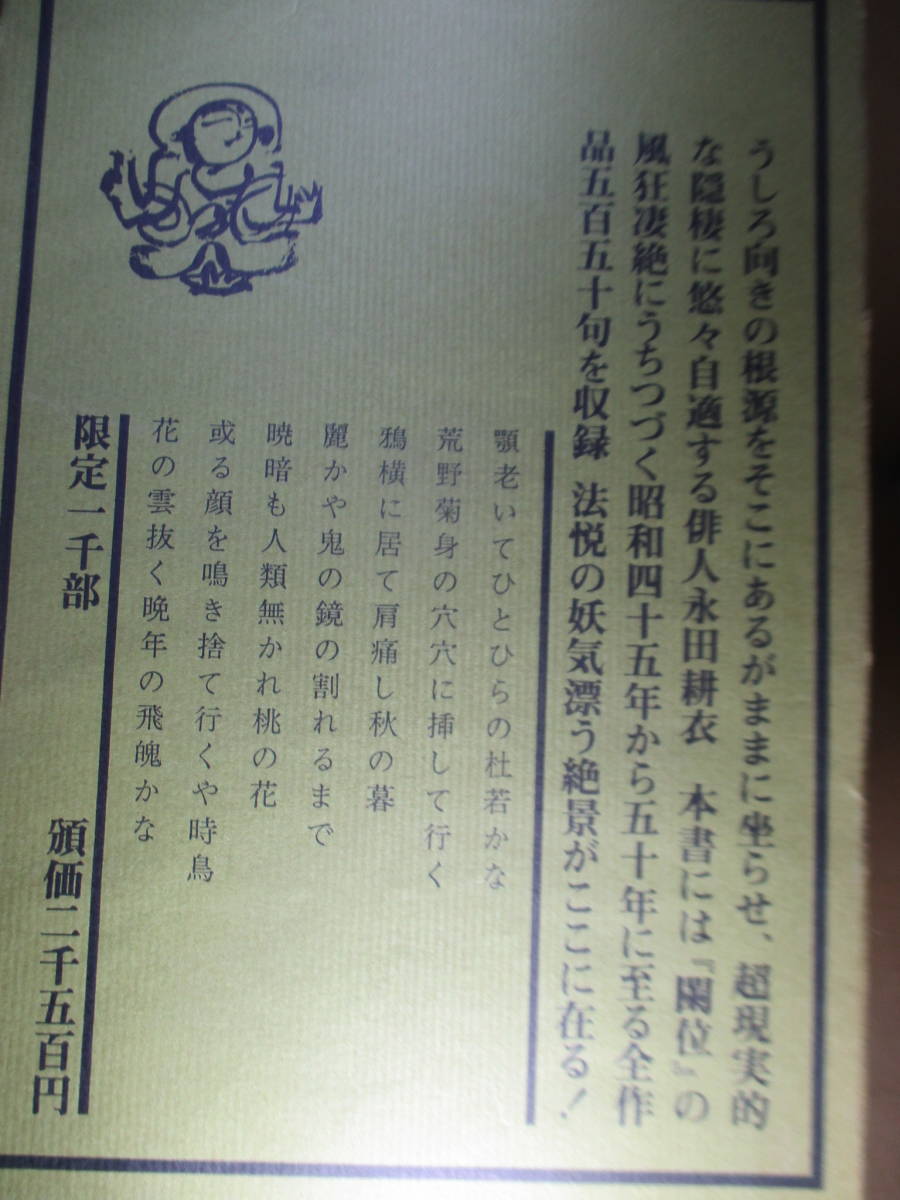 うしろ向きの根源をそこにあるがままに坐らせ、超現実的
な隠棲に悠々自適する俳人永田耕衣　本書には『闌位』の
風狂凄絶にうちつづく昭和四十五年から五十年に至る全作
品五百五十句を収録　法悦の妖気漂う絶景がここに在る！
顎老いてひとひらの杜若かな
荒野菊身の穴穴に挿して行く
鴉横に居て肩痛し秋の暮
麗かや鬼の鏡の割れるまで
暁暗も人類無かれ桃の花
或る顔を鳴き捨て行くや時鳥
花の雲抜く晩年の飛魄かな
限定一千部　頒価二千五百円